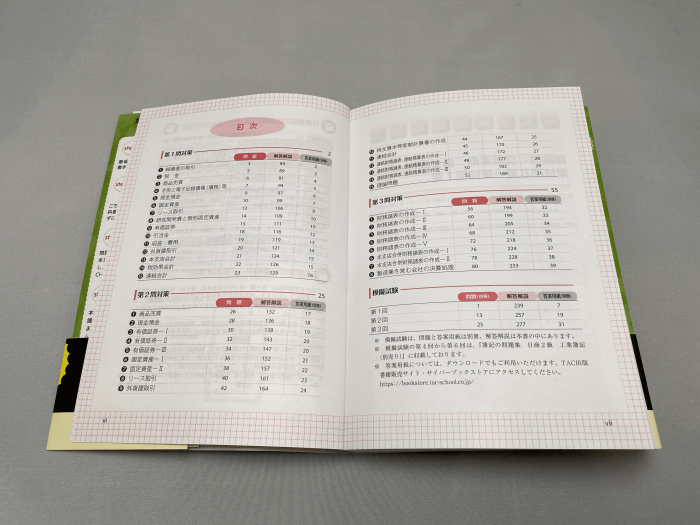 目次
第1問対策 2
問題 解答解説 答案用紙(別冊)
❶ 諸資産の取引
❷ 現金
❸ 商品売買
❺ 現金預金
❻ 固定資産
❼ リース取引 13 106 9
❽ 研究開発費と無形固定資産 14 109
❾ 有価証券 15 111
❿ 引当金 18 116
⓫ 収益・費用 19 119 13
⓬ 外貨建取引 20 121 14
⓭ 本支店会計 21 124 15
⓮ 税効果会計 22 126 15
⓯ 連結会計 23 129 16
第2問対策 25
問題 解答解説 答案用紙(別冊)
❶ 商品売買 26 132 17
❷ 現金預金 28 136 18
❸ 有価証券-Ⅰ 30 138 19
❹ 有価証券-Ⅱ 32 143 20
❺ 有価証券-Ⅲ 34 147 20
❻ 固定資産-Ⅰ 36 152 21
❼ 固定資産-Ⅱ 38 157 22
❽ リース取引 40 161 23
❾ 外貨建取引 42 164 24
vi
❿ 株主資本等変動計算書の作成 44 167 25
⓫ 連結会計 45 170 26
⓬ 連結財務諸表、連結精算表の作成-Ⅰ 46 172 27
⓭ 連結財務諸表、連結精算表の作成-Ⅱ 48 177 28
⓮ 連結財務諸表、連結精算表の作成-Ⅲ 50 182 29
⓯ 理論問題 52 188 31
第3問対策 55
問題 解答解説 答案用紙(別冊)
❶ 財務諸表の作成-Ⅰ 56 194 32
❷ 財務諸表の作成-Ⅱ 60 199 33
❸ 財務諸表の作成-Ⅲ 64 205 34
❹ 財務諸表の作成-Ⅳ 68 212 35
❺ 財務諸表の作成-Ⅴ 72 218 36
❻ 本支店合併財務諸表の作成-Ⅰ 76 224 37
❼ 本支店合併財務諸表の作成-Ⅱ 78 228 38
❽ 製造業を営む会社の決算処理 80 233 39
模擬試験
問題(別冊) 解答解説 答案用紙(別冊)
第1回 239 7
第2回 13 257 19
第3回 25 277 31
※ 模擬試験は、問題と答案用紙は別冊、解答解説は本書の中にあります。
※ 模擬試験の第4回から第6回は、『簿記の問題集 日商2級 工業簿記
(別売り)』に収載しております。
※ 答案用紙については、ダウンロードでもご利用いただけます。TAC出版
書籍販売サイト・サイバーブックストアにアクセスしてください。
https://bookstore.tac-school.co.jp/
vii